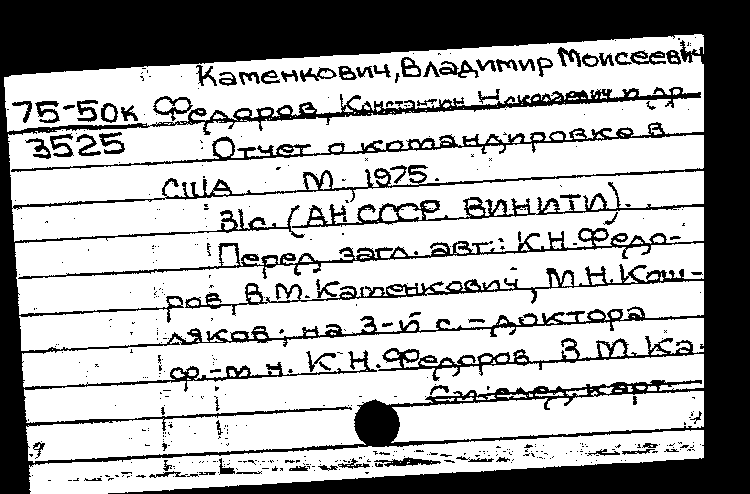 Каменкович, Владимир Моисеевич
75-50к Федоров, Константин Николаевич и др.
3525 Отчет о командировке в
США. М., 1975.
31с. (АН СССР. ВИНИТИ).
Перед загл. авт.: К.Н.Федо-
ров, В.М.Каменкович, М.Н.Кош-
ляков; на 3-й с. - доктора
ф.-м.н. К.Н.Федоров, В.М.Ка-
См. след. карт.